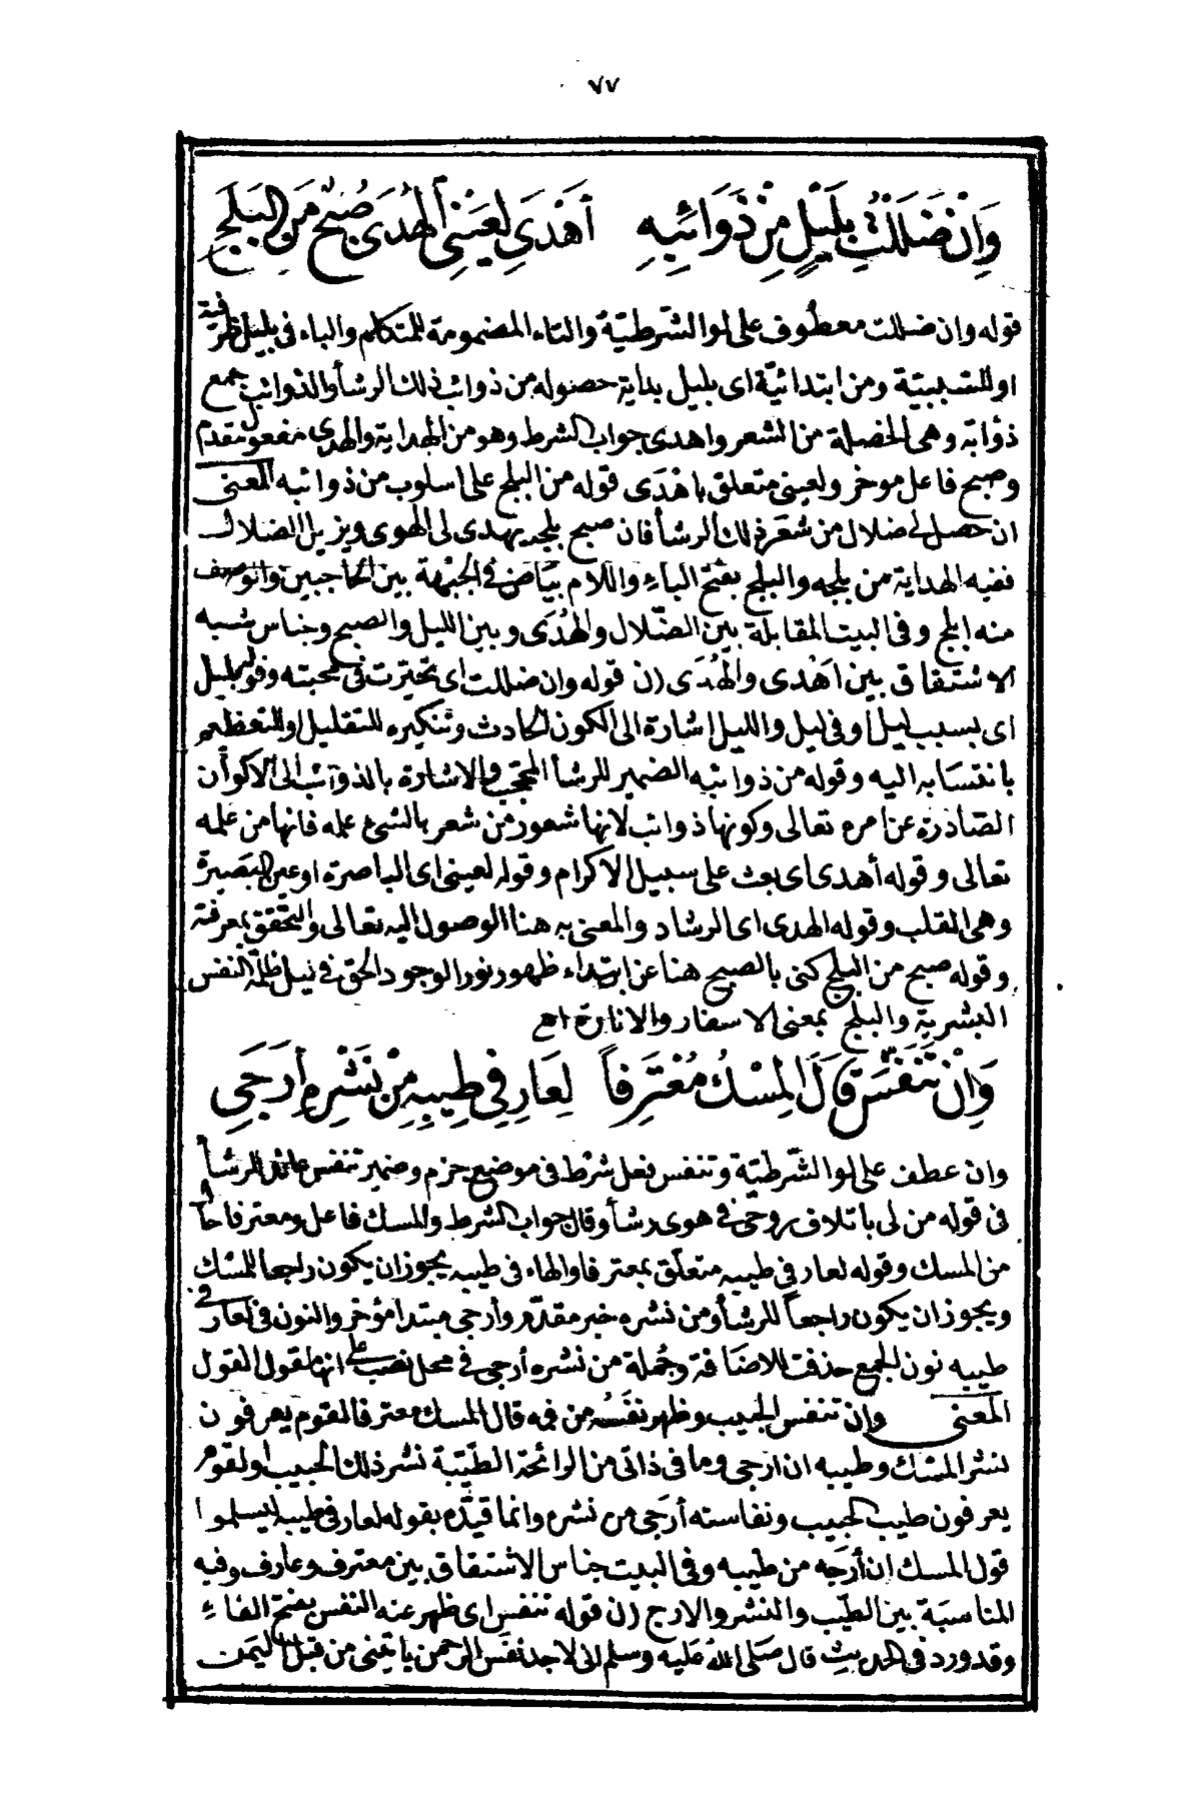 ٧٧
وَاِنْ ضَلَلْتُ بِلَيْلٍ مِنْ ذَوَائِبِهِ أَهْدَى لِعَيْنِى الْهُدَى صُبْحٌ مِنَ الْبَلَجِ
قوله وان ضللت معطوف على لو الشرطيّة والتاء المضمومة للمتكلم والباء فى بليل ظرفية
او للسببية ومن ابتدائيّة اى بليل بداية حصوله من ذوائب ذلك الرشأ والذوائب جمع
ذؤابة وهى الخصلة من الشعر واهدى جواب الشرط وهو من الهداية والهدى مفعول مقدم
وصبح فاعل موخر ولعينى متعلق باهْدَى قوله من البلج على اسلوب من ذوائبه المعنى
ان حصل لى ضلال من شعَر ذلك الرشأ فان صبح بلجه يهدى لى الهوى ويزيل الضلال
ففيه الهداية من بلجه والبلج بفتح الباء واللام بيَاض فى الجبْهة بين الحاجبين والوصف
منه ابلج وفى البيت المقابلة بين الضلال والهُدَى وبين الليل والصبح وجناس شبه
الاشتقاق بين اهْدى والهُدَى (ن قوله وان ضللت اى تحيرت فى محبته وقوله بليل
اى بسبب ليل أو فى ليل والليل اشارة الى الكون الحادث وتنكيره للتقليل او للتعظيم
بانتسابه اليه وقوله من ذوائبه الضمير للرشأ المحجّب والاشارة بالذوآئب الى الأكوان
الصّادرة عن امره تعالى وكونها ذوائب لانها شعور من شعر بالشئ علمه فانها من علمه
تعالى وقوله أهدى اى بعث على سبيل الاكرام وقوله لعينى اى الباصرة او عين البَصيرة
وهى القلب وقوله الهدى اى الرشاد والمعنى به هنا الوصول اليه تعالى والتحقق بمعرفته
وقوله صبح من البلج كنى بالصبح هنا عن ابتداء ظهور نور الوجود الحق فى ليل ظلمة النفس
البشرية والبلج بمعنى الاسفار والانارة اهـ
وَاِنْ تَنَفَّسَ قَالَ الْمِسْكُ مُعْتَرِفاً لِعَارِفِى طِيبِهِ مِنْ نَشْرِهِ أَرَجِى
وان عطف على لو الشّرطيّة وتنفس فعل شرط فى موضع جزم وضمير تنفس عائد للرشأ
فى قوله من لى باتلاف روحى فى هوى رشأ وقال جواب الشرط والمسك فاعل ومعترفا حال
من المسك وقوله لعارفى طيبه متعلّق بمعترفا والهاء فى طيبه يجوز ان يكون راجعا للمسك
ويجوز ان يكون راجعاً للرشأ ومن نشره خبر مقدّم وأرجى مبتدا مؤخر والنون فى لعارفى
طيبه نون الجمع حذفت للاضافة وجُملة من نشره أرجى فى محل نصب على انها مقول القول
المعنى وان تنفس الحبيب وظهر نفَسُه من فيه قال المسك معترفا لقوم يعرفون
نشر المسك وطيبه ان ارجى وما فى ذاتى من الرائحة الطيّبة نشر ذلك الحبيب او لقوم
يعرفون طيب الحبيب ونفاسته أرَجى من نشره وانما قيّده بقوله لعارفى طيبه ليسلموا
قول المسك ان أرَجَه من طيبه وفى البيت جناس الاشتقاق بين معترف وعارف وفيه
المناسبَة بين الطيّب والنشر والارج (ن قوله تنفس اى ظهر عنه النفس بفتح الفاء
وقد ورد فى الحديث قال صلى الله عليه وسلم انى لاجد نفَس الرحمن ياتينى من قبل اليمن